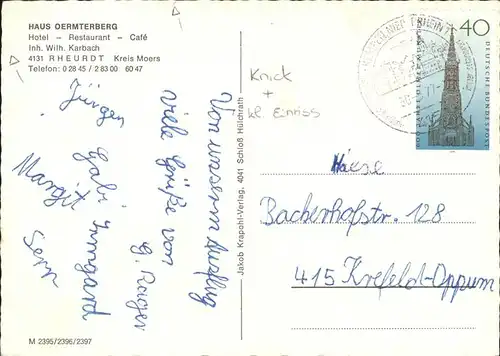 HAUS OERMTERBERG
Hotel – Restaurant – Café
Inh. Wilh. Karbach
4131 RHEURDT Kreis Moers
Telefon: 0 28 45 / 2 83 00 60 47
Knick
+
kl. Einriss
40
DEUTSCHE BUNDESPOST
Jakob Krapohl-Verlag, 4041 Schloß Hülchrath
Von unserm Ausflug
viele Grüße von
Jürgen
Gabi Irmgard
Margit
Haese
Backerhofstr. 128
415 Krefeld-Oppum
M 2395/2396/2397